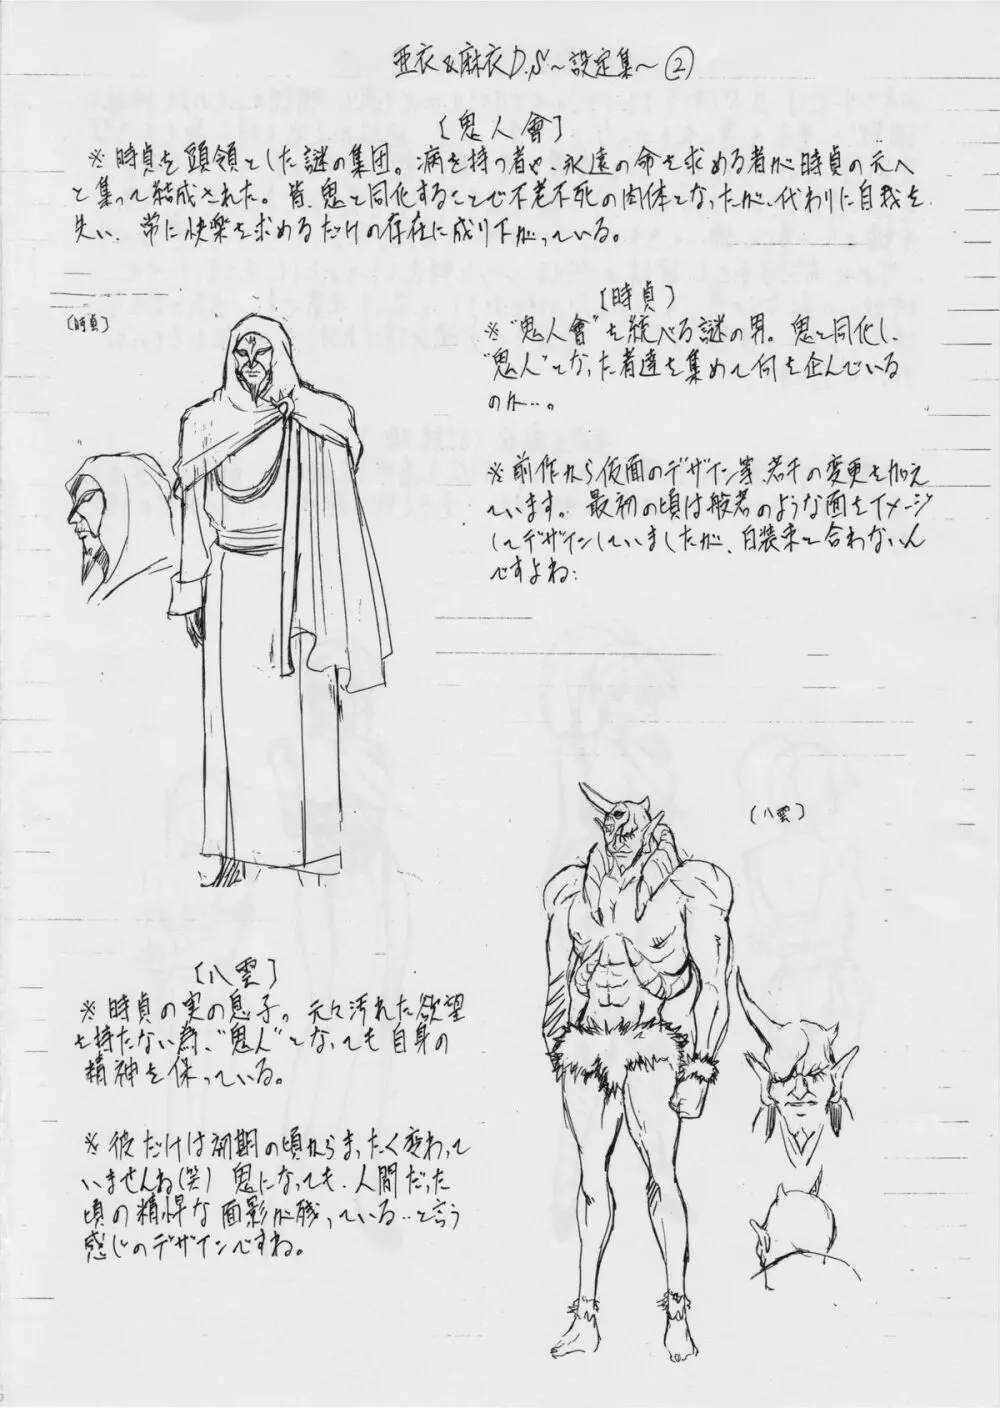 亜衣&麻衣D.S〜設定集〜②
〔鬼人會〕
※時貞を頭領とした謎の集団。病を持つ者や、永遠の命を求める者が時貞の元へ
と集って結成された。皆、鬼と同化することで不老不死の肉体となったが、代わりに自我を
失い、常に快楽を求めるだけの存在に成り下がっている。
〔時貞〕
〔時貞〕
※"鬼人會"を統べる謎の男。鬼と同化し、
"鬼人"となった者達を集めて何を企んでいる
のか…。
※前作から仮面のデザイン等、若干の変更を加え
ています。最初の頃は般若のような面をイメージ
してデザインしていましたが、白装束と合わないん
ですよね:
〔八雲〕
〔八雲〕
※時貞の実の息子。元々汚れた欲望
を持たない為、"鬼人"となっても自身の
精神を保っている。
※彼だけは初期の頃からまったく変わって
いませんね(笑)鬼になっても、人間だった
頃の精悍な面影が残っている…と言う
感じのデザインですね。